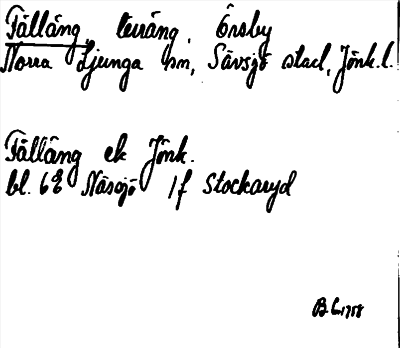 Fällång, teräng, Örsby
Norra Ljunga sn, Sävsjö stad, Jönk.l.
Fällång ek Jönk.
bl. 6g Nässjö 1f Stockaryd